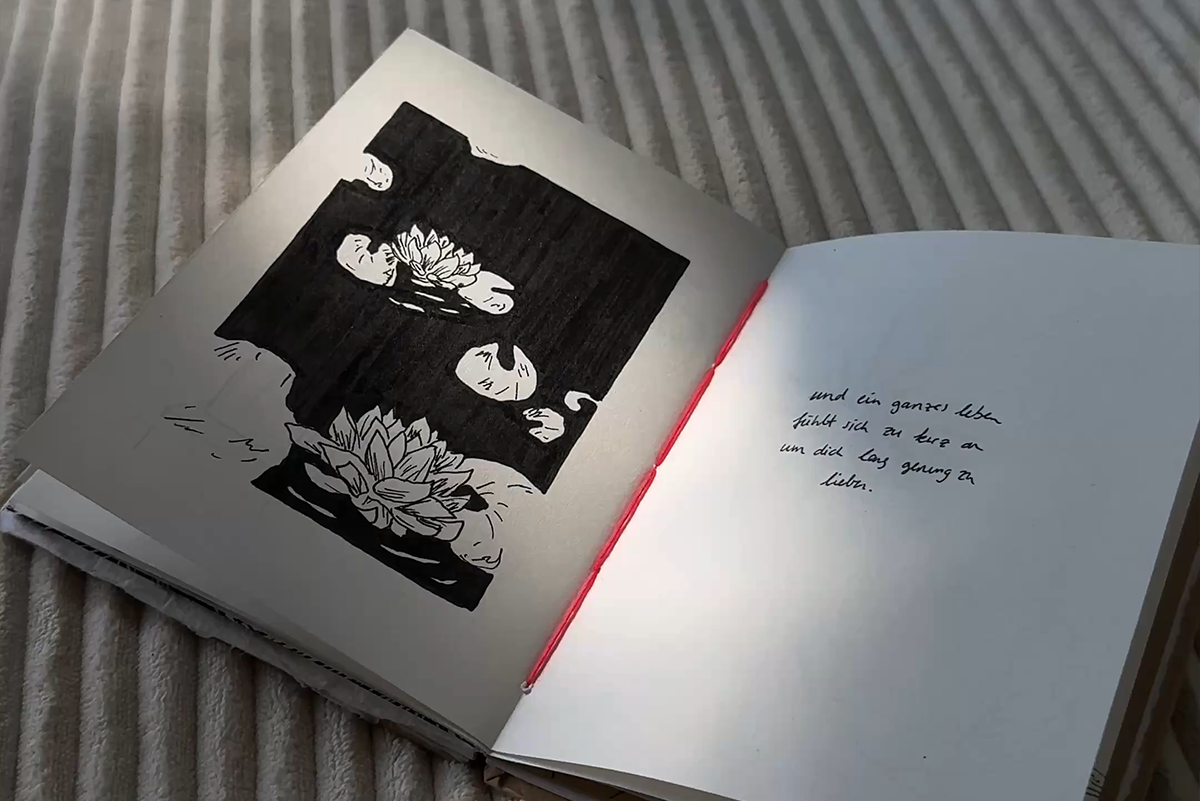 und ein ganzes leben
fühlt sich zu kurz an
um dich lang genung zu
lieben.